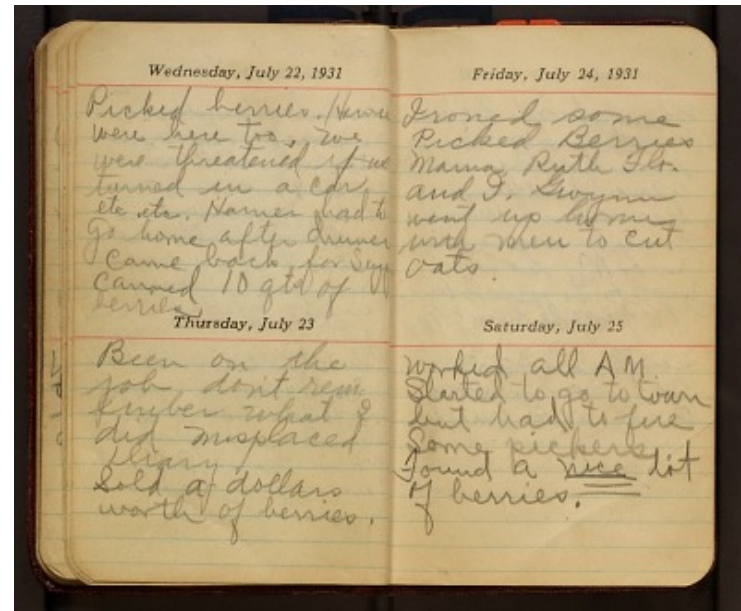 Wednesday, July 22, 1931
Picked berries.
were here too, we
were threatened if we
turned in a car,
etc etc. Harner had to
go home after dinner
came back for
canned 10 qts of
berries.
Thursday, July 23
Been on the
job dont rem
ember what I
did misplaced
diary
Sold a dollars
worth of berries.
Friday, July 24, 1931
Ironed some
Picked Berries
Mama Ruth Flo.
and I. Gwynn
went up home
with men to cut
oats.
Saturday, July 25
Worked all A M.
Started to go to town
but had to fire
some pickers.
Found a nice lot
of berries.